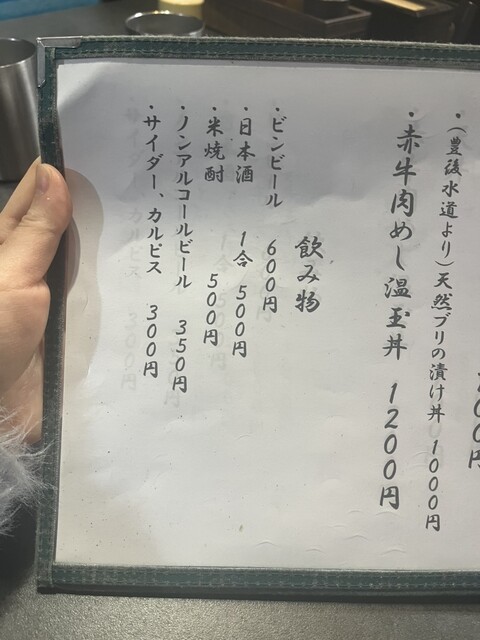 ００円
・（豊後水道より）天然ブリの漬け丼　１０００円
・赤牛肉めし温玉丼　１２００円
飲み物
・ビンビール　６００円
・日本酒　１合　５００円
・米焼酎　５００円
・ノンアルコールビール　３５０円
・サイダー、カルピス　３００円